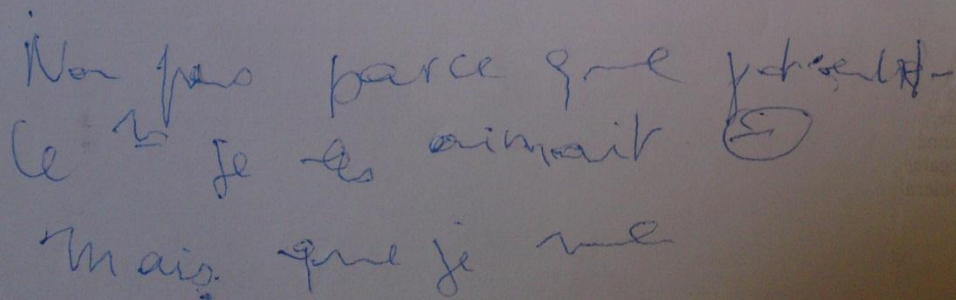 Non pas parce que
Ce je les aimait
Mais que je me